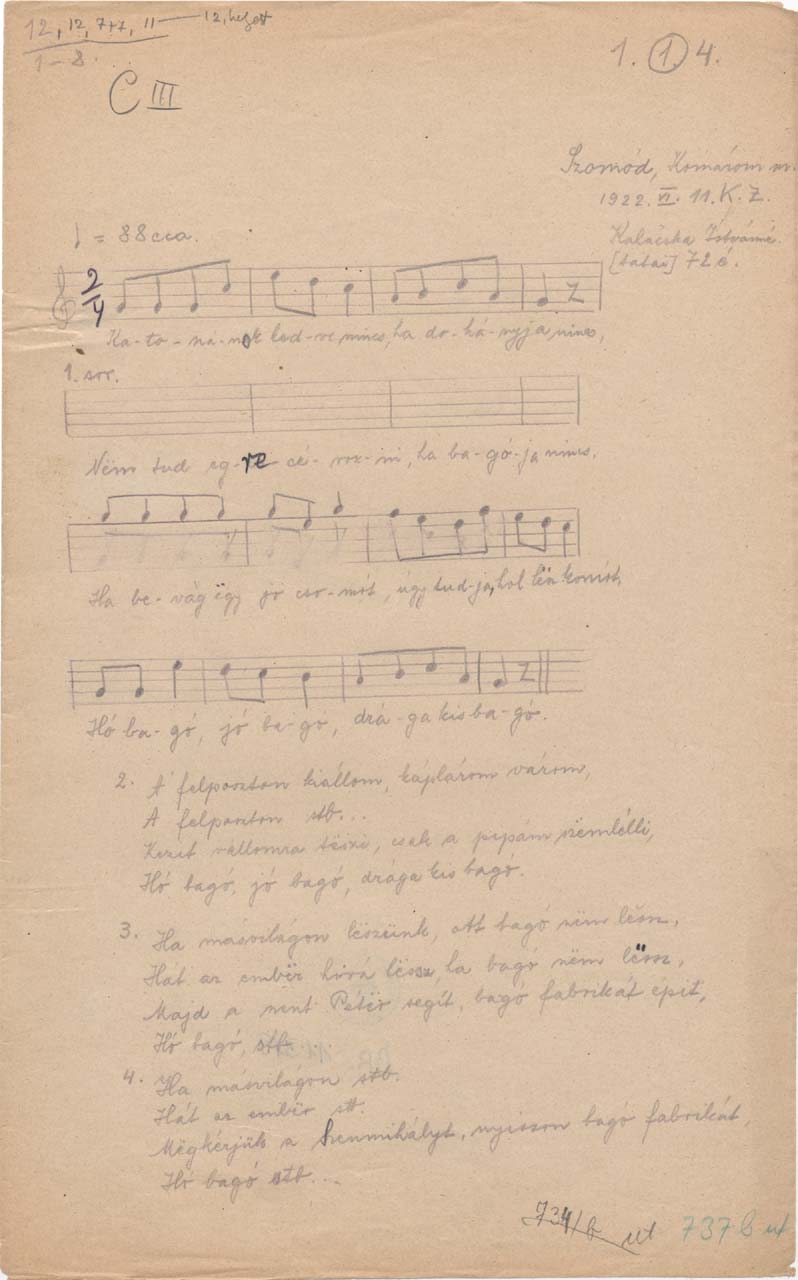 12, 12, 7+7, 11 — 12, helyett
1-8.
1. 1. 4.
C III
Szomód, Komárom m.
1922. VI. 11. K. Z.
Kalácska Istvánné
[tatai] 72 é.
♩ = 88 cca.
2/4
Ka-to-ná-nak ked-ve nincs, ha do-há-nyja nincs,
1. sor.
Nëm tud eg-re-cé-roz-ni, ha ba-gó-ja nincs.
Ha be-vág ëgy jó cso-mót, úgy tud-ja, hol lën
Hó ba-gó, jó ba-gó, drá-ga kis ba-gó.
2. A felposzton kiállom, káplárom várom,
A felposzton stb...
Kezit vállomra tëszi, csak a pipám szëmlélli,
Hó bagó, jó bagó, drága kis bagó.
3. Ha másvilágon lëszünk, ott bagó nëm lësz,
Hát az embër hová lëssz, ha bagó nëm lëssz,
Majd a szent Pétër segít, bagó fabrikát épit,
Hó bagó, stb.
4. Ha másvilágon stb.
Hát az embër stb.
Mëgkérjük a Szenmihályt, nyisson bagó fabrikát,
Hó bagó stb...
734/b ut 737 b ut